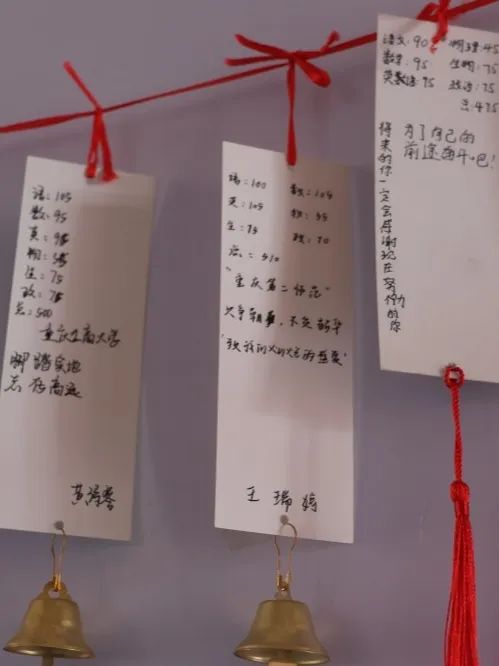 语：105
数：95
英：95
物：55
生：75
政：75
总：500
重庆工商大学
脚踏实地
志存高远
语：100 数：105
英：105 物：55
生：75 政：70
总：510
"重庆第二师范"
只争朝夕，不负韶华
王瑞婷
语文：90 物理：45
数学：95 生物：75
英语：95 政治：75
总：475
为了自己的
前途奋斗吧！
将来的你一定会感谢现在努力的你